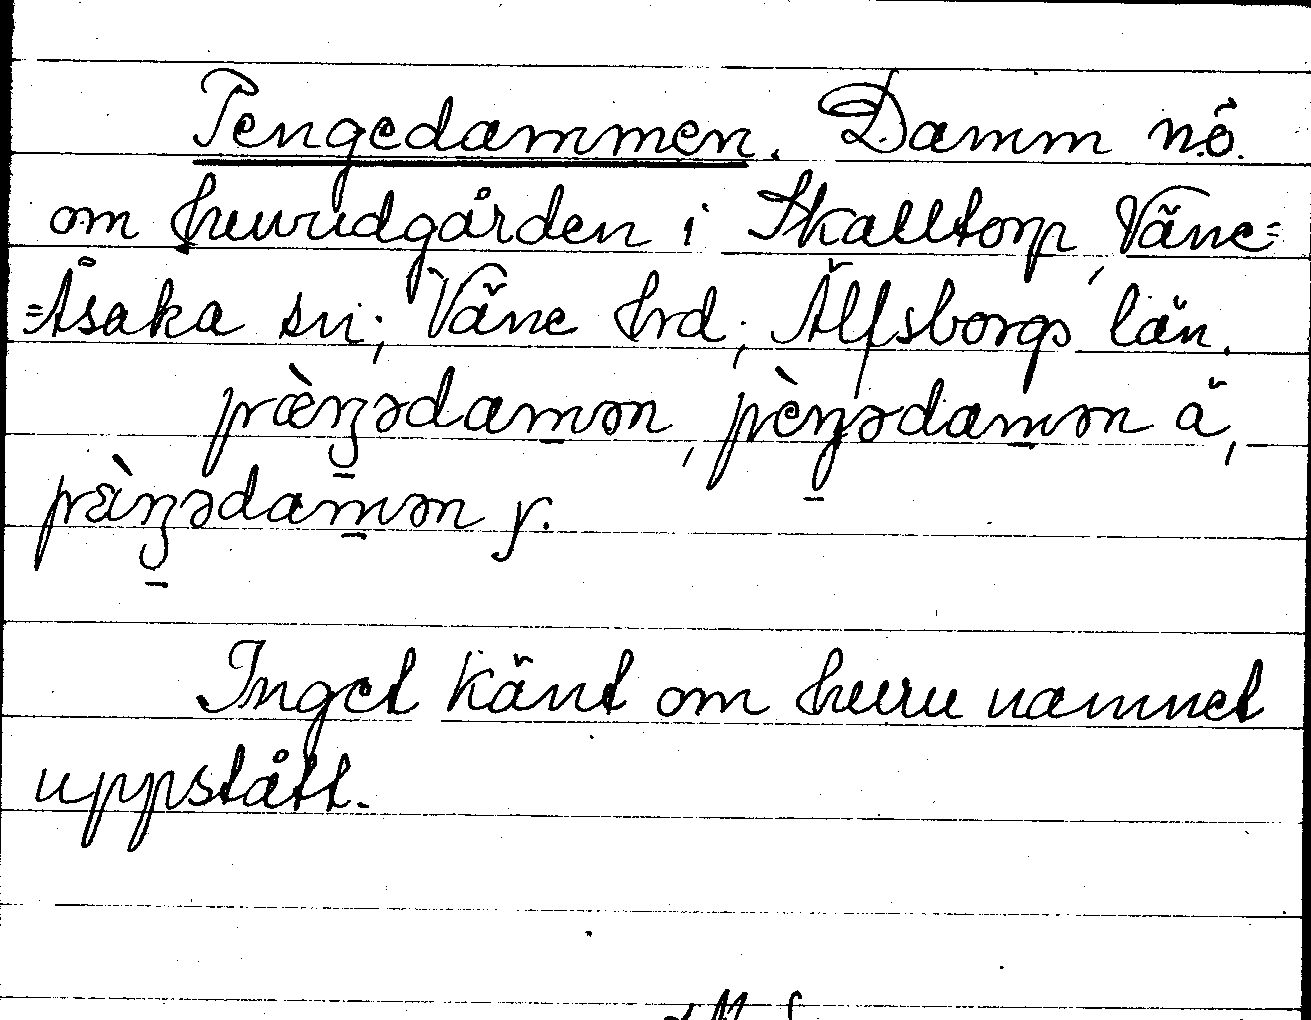 Pengedammen. Damm n.ö.
om huvudgården i Skalltorp, Väne=
=Åsaka sn; Väne hrd; Älfsborgs län.
pæ̀ŋədamən, pèŋədamən ä,
pàŋədamən y.
Inget känt om huru namnet
uppstått.